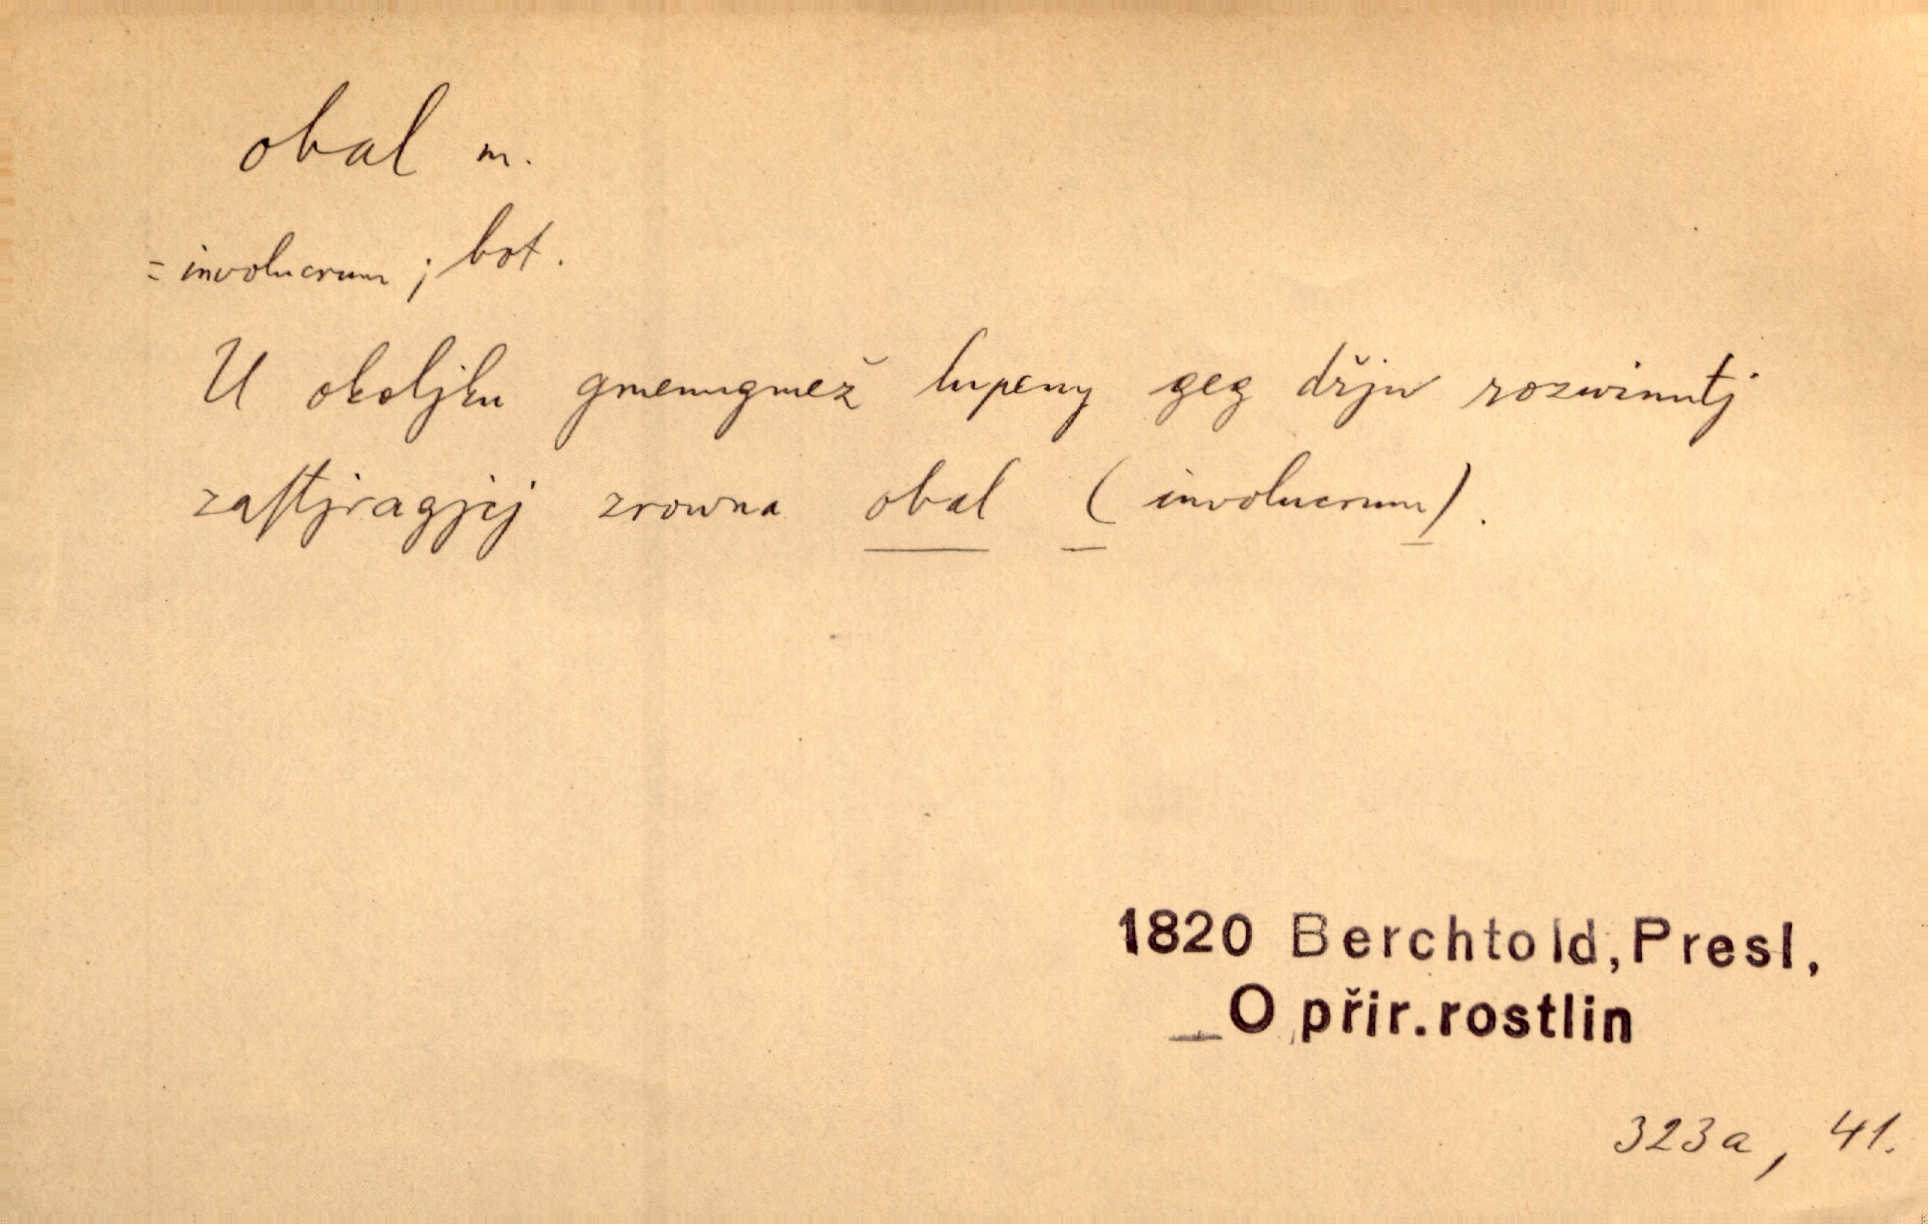 obal m.
= involucrum ; bot.
U okoljku gmenugmež lupeny geg držjw rozwinutj
zaſtjragjcj zrowna obal (involucrum).
1820 Berchtold, Presl,
O přir. rostlin
323a, 41.